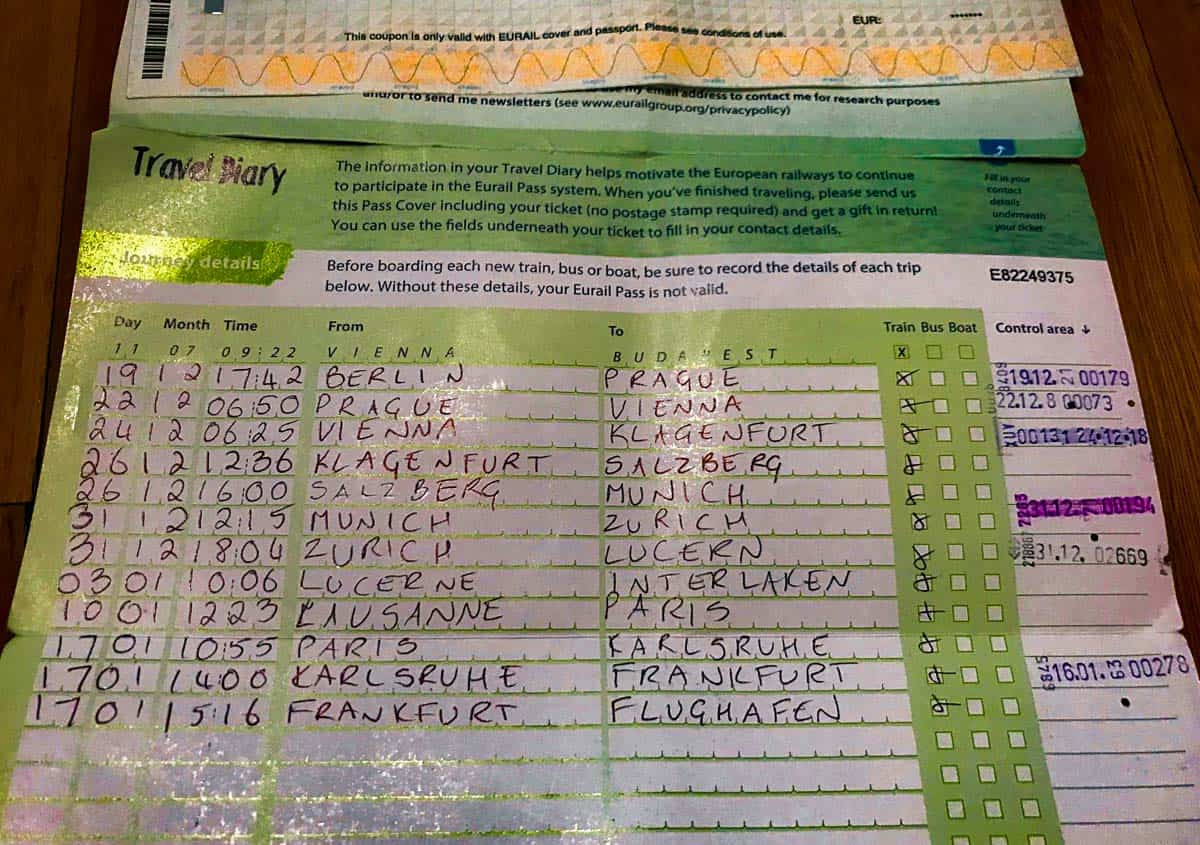 EUR: *******
This coupon is only valid with EURAIL cover and passport. Please see conditions of use.
my email address to contact me for research purposes
and/or to send me newsletters (see www.eurailgroup.org/privacypolicy)
Travel Diary
The information in your Travel Diary helps motivate the European railways to continue
to participate in the Eurail Pass system. When you've finished traveling, please send us
this Pass Cover including your ticket (no postage stamp required) and get a gift in return!
You can use the fields underneath your ticket to fill in your contact details.
Fill in your
contact
details
underneath
your ticket
Journey details
Before boarding each new train, bus or boat, be sure to record the details of each trip
below. Without these details, your Eurail Pass is not valid.
E82249375
Day Month Time From To Train Bus Boat Control area
11 07 09:22 VIENNA BUDAPEST X
19 12 17:42 BERLIN PRAGUE X 19.12. 00179
22 12 06:50 PRAGUE VIENNA X 22.12.8 00073
24 12 06:25 VIENNA KLAGENFURT X 00131 24.12.18
26 12 12:36 KLAGENFURT SALZBERG X
26 12 16:00 SALZBERG MUNICH X
31 12 12:15 MUNICH ZURICH X 31.12. 00194
31 12 18:04 ZURICH LUCERN X 31.12. 02669
03 01 10:06 LUCERNE INTERLAKEN X
10 01 1223 LAUSANNE PARIS X
17 01 10:55 PARIS KARLSRUHE X
17 01 1400 KARLSRUHE FRANKFURT X 16.01. 00278
17 01 15:16 FRANKFURT FLUGHAFEN X